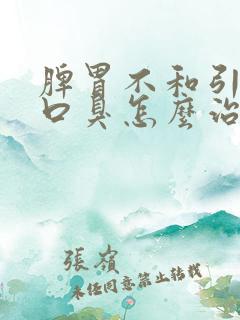 脾胃不和引
口臭怎麼治
張嶺
未任同意禁止转载